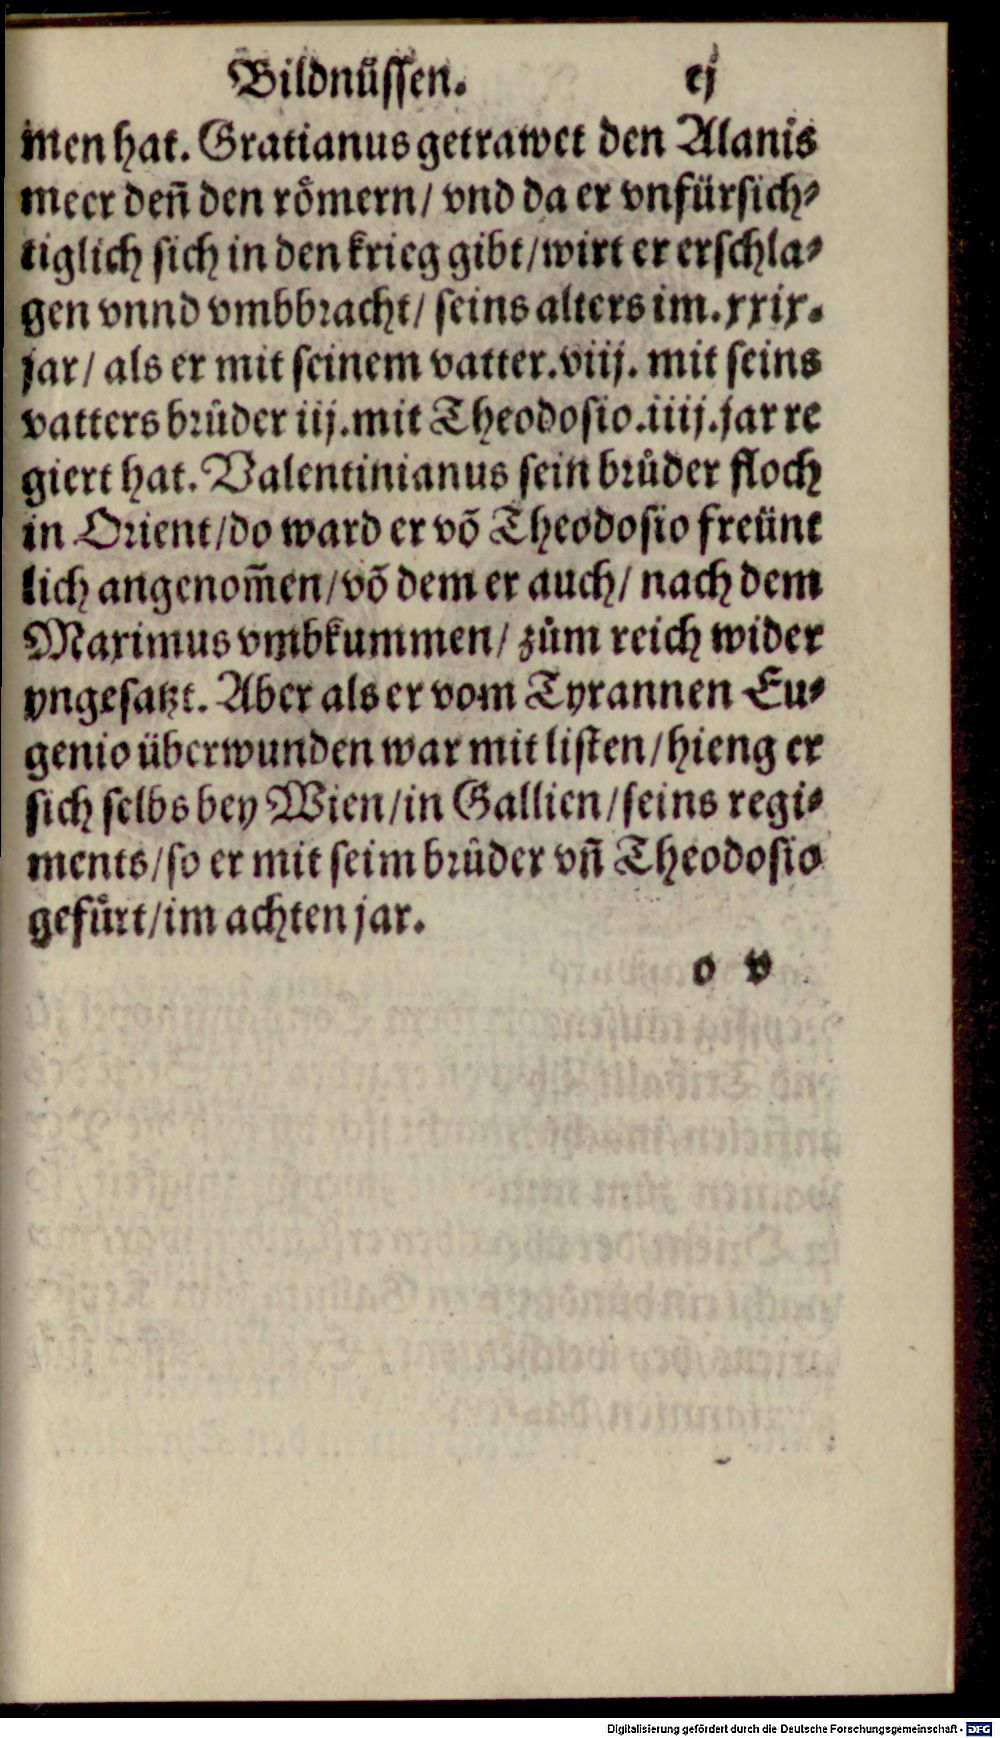 Bildnüssen. cj
men hat. Gratianus getrawet den Alanis
meer deñ den römern/ vnd da er vnfürsich⸗
tiglich sich in den krieg gibt/wirt er erschla⸗
gen vnnd vmbbracht/ seins alters im.xxix.
jar/ als er mit seinem vatter.viij. mit seins
vatters brůder iij.mit Theodosio.iiij.jar re
giert hat. Valentinianus sein brůder floch
in Orient/do ward er võ Theodosio freünt
lich angenom̃en/võ dem er auch/ nach dem
Maximus vmbkummen/ zům reich wider
yngesatzt. Aber als er vom Tyrannen Eu⸗
genio überwunden war mit listen/hieng er
sich selbs bey Wien/in Gallien/seins regi⸗
ments/so er mit seim brůder vñ Theodosio
gefůrt/im achten jar.
o v
Digitalisierung gefördert durch die Deutsche Forschungsgemeinschaft - DFG